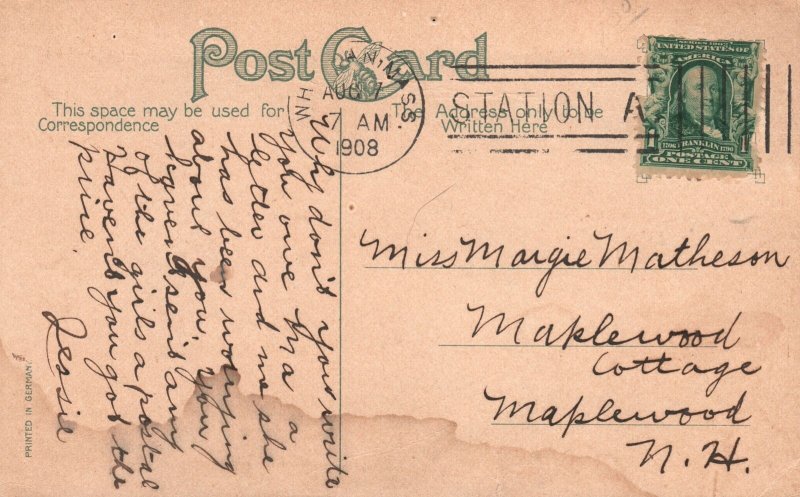 Post Card
This space may be used for
Correspondence
The Address only to be
Written Here
AUG 7
7 AM
1908
MASS
STATION A
SERIES 1902
UNITED STATES OF
AMERICA
1706 FRANKLIN 1790
POSTAGE
1 ONE CENT 1
Miss Margie Matheson
Maplewood
Cottage
Maplewood
N.H.
Why don't you write
you owe Ma a
letter and me she
has been worrying
about you. you
haven't sent any
of the girls a postal
haven't you got the
price.
Jessie
PRINTED IN GERMANY